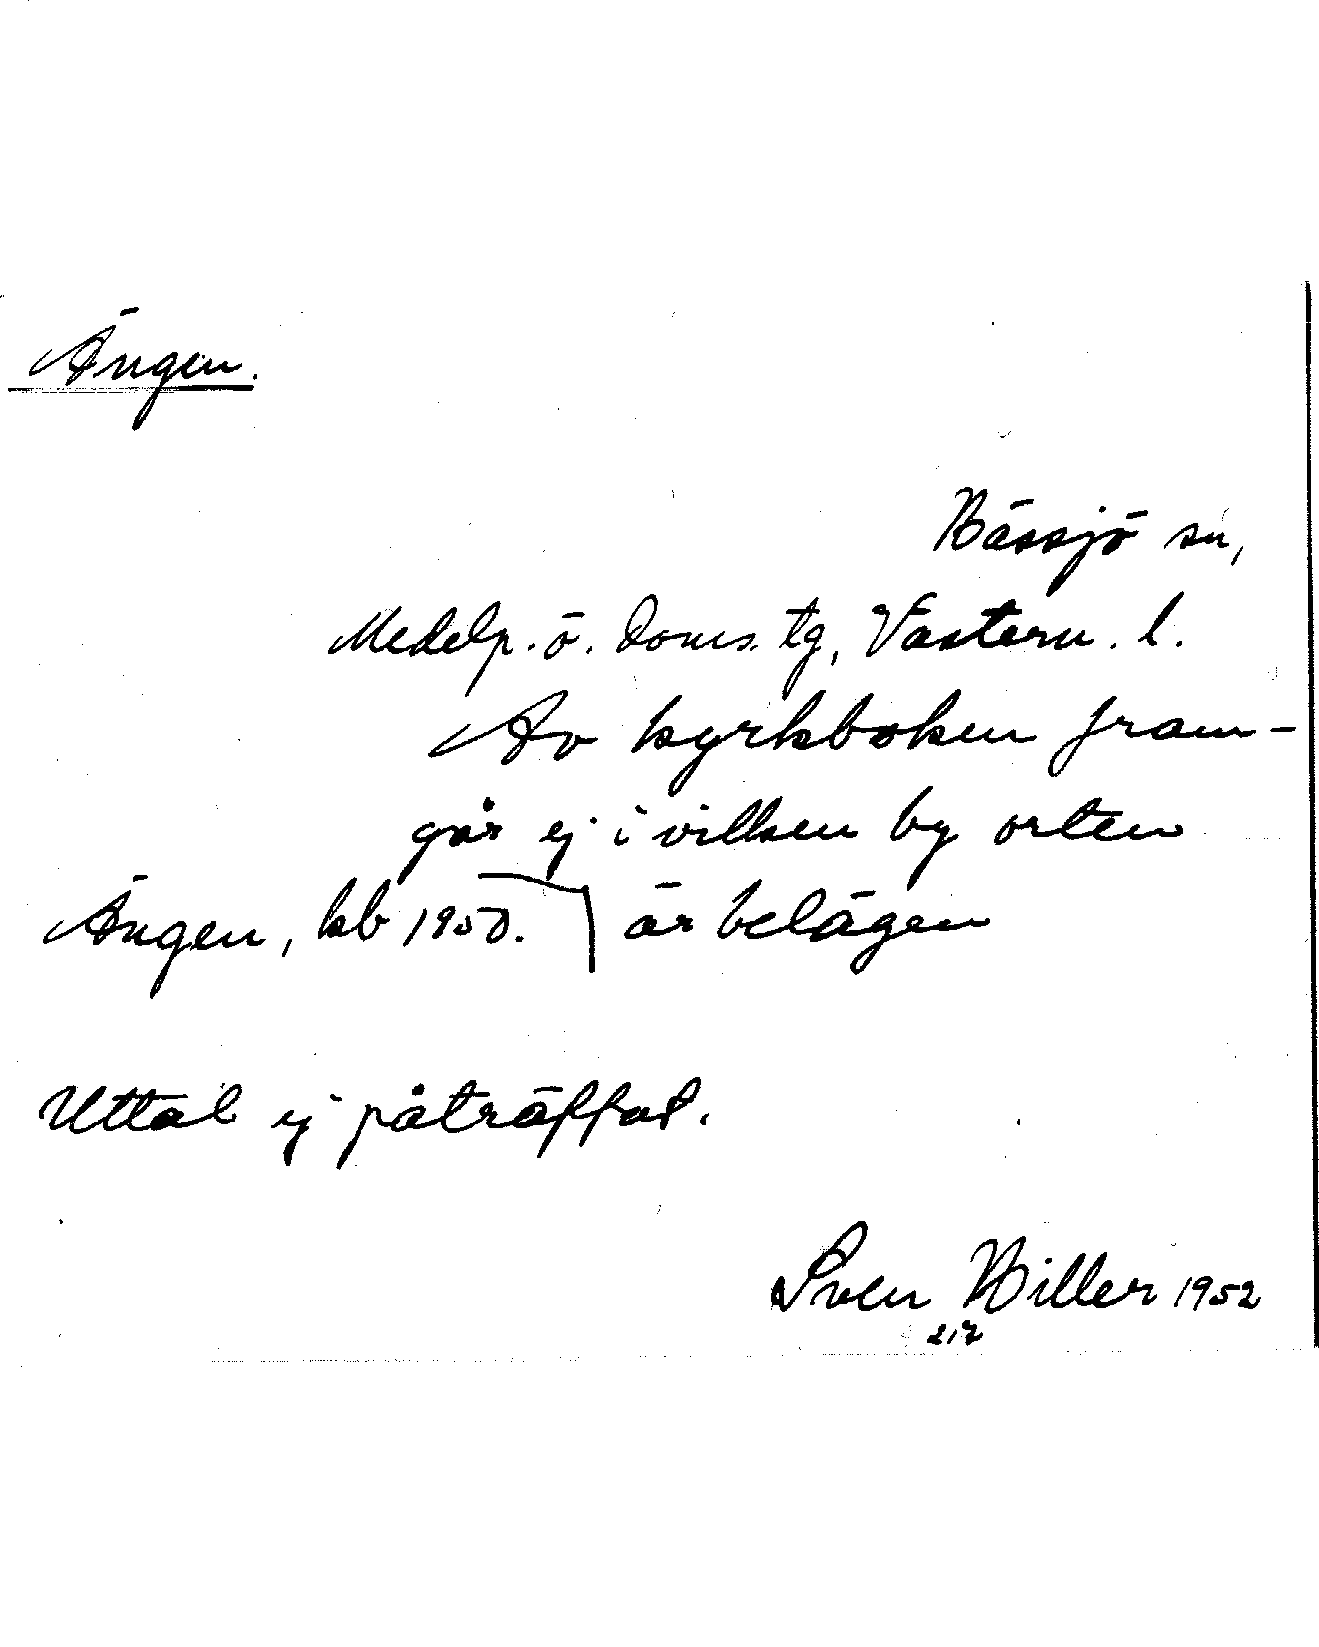 Ängen.
Bässjö sn,
Medelp. ö. doms. tg, Västern. l.
Av kyrkboken fram-
går ej i vilken by orten
Ängen, kb 1950. är belägen
Uttal ej påträffat.
Sven Hiller 1952